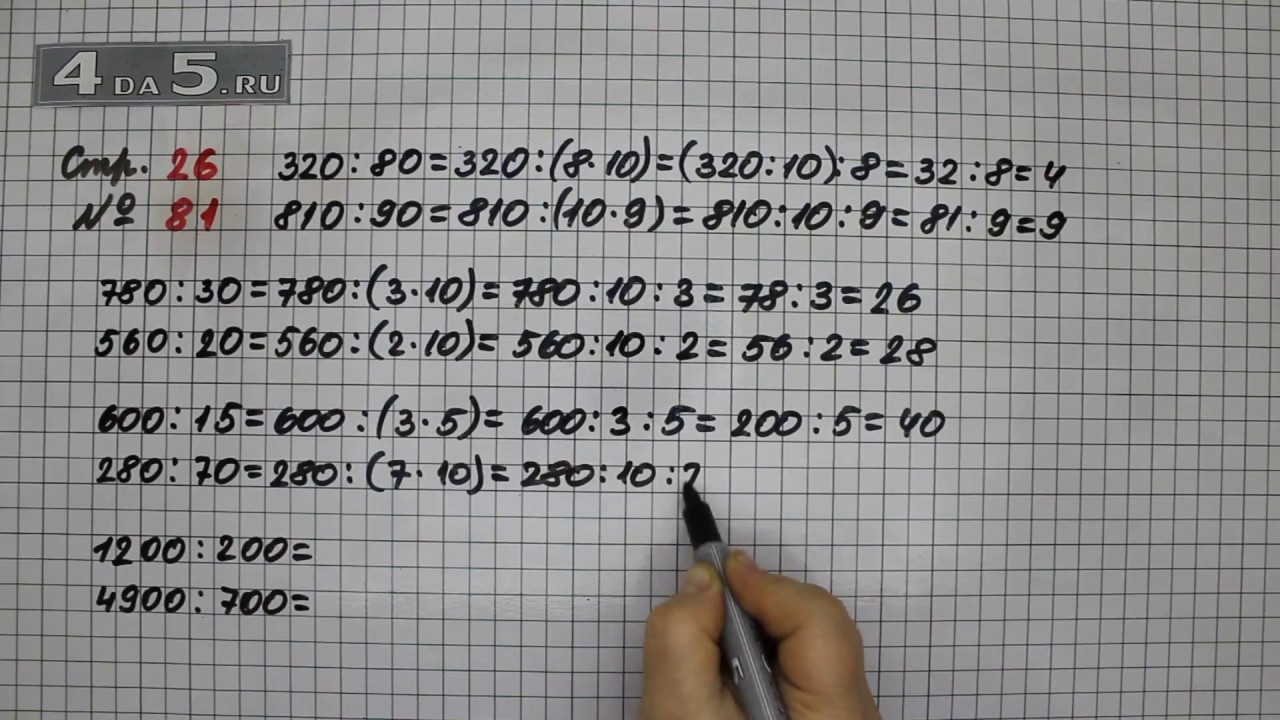 4 DA 5.RU
Стр. 26 320 : 80 = 320 : (8 · 10) = (320 : 10) : 8 = 32 : 8 = 4
№ 81 810 : 90 = 810 : (10 · 9) = 810 : 10 : 9 = 81 : 9 = 9
780 : 30 = 780 : (3 · 10) = 780 : 10 : 3 = 78 : 3 = 26
560 : 20 = 560 : (2 · 10) = 560 : 10 : 2 = 56 : 2 = 28
600 : 15 = 600 : (3 · 5) = 600 : 3 : 5 = 200 : 5 = 40
280 : 70 = 280 : (7 · 10) = 280 : 10 :
1200 : 200 =
4900 : 700 =